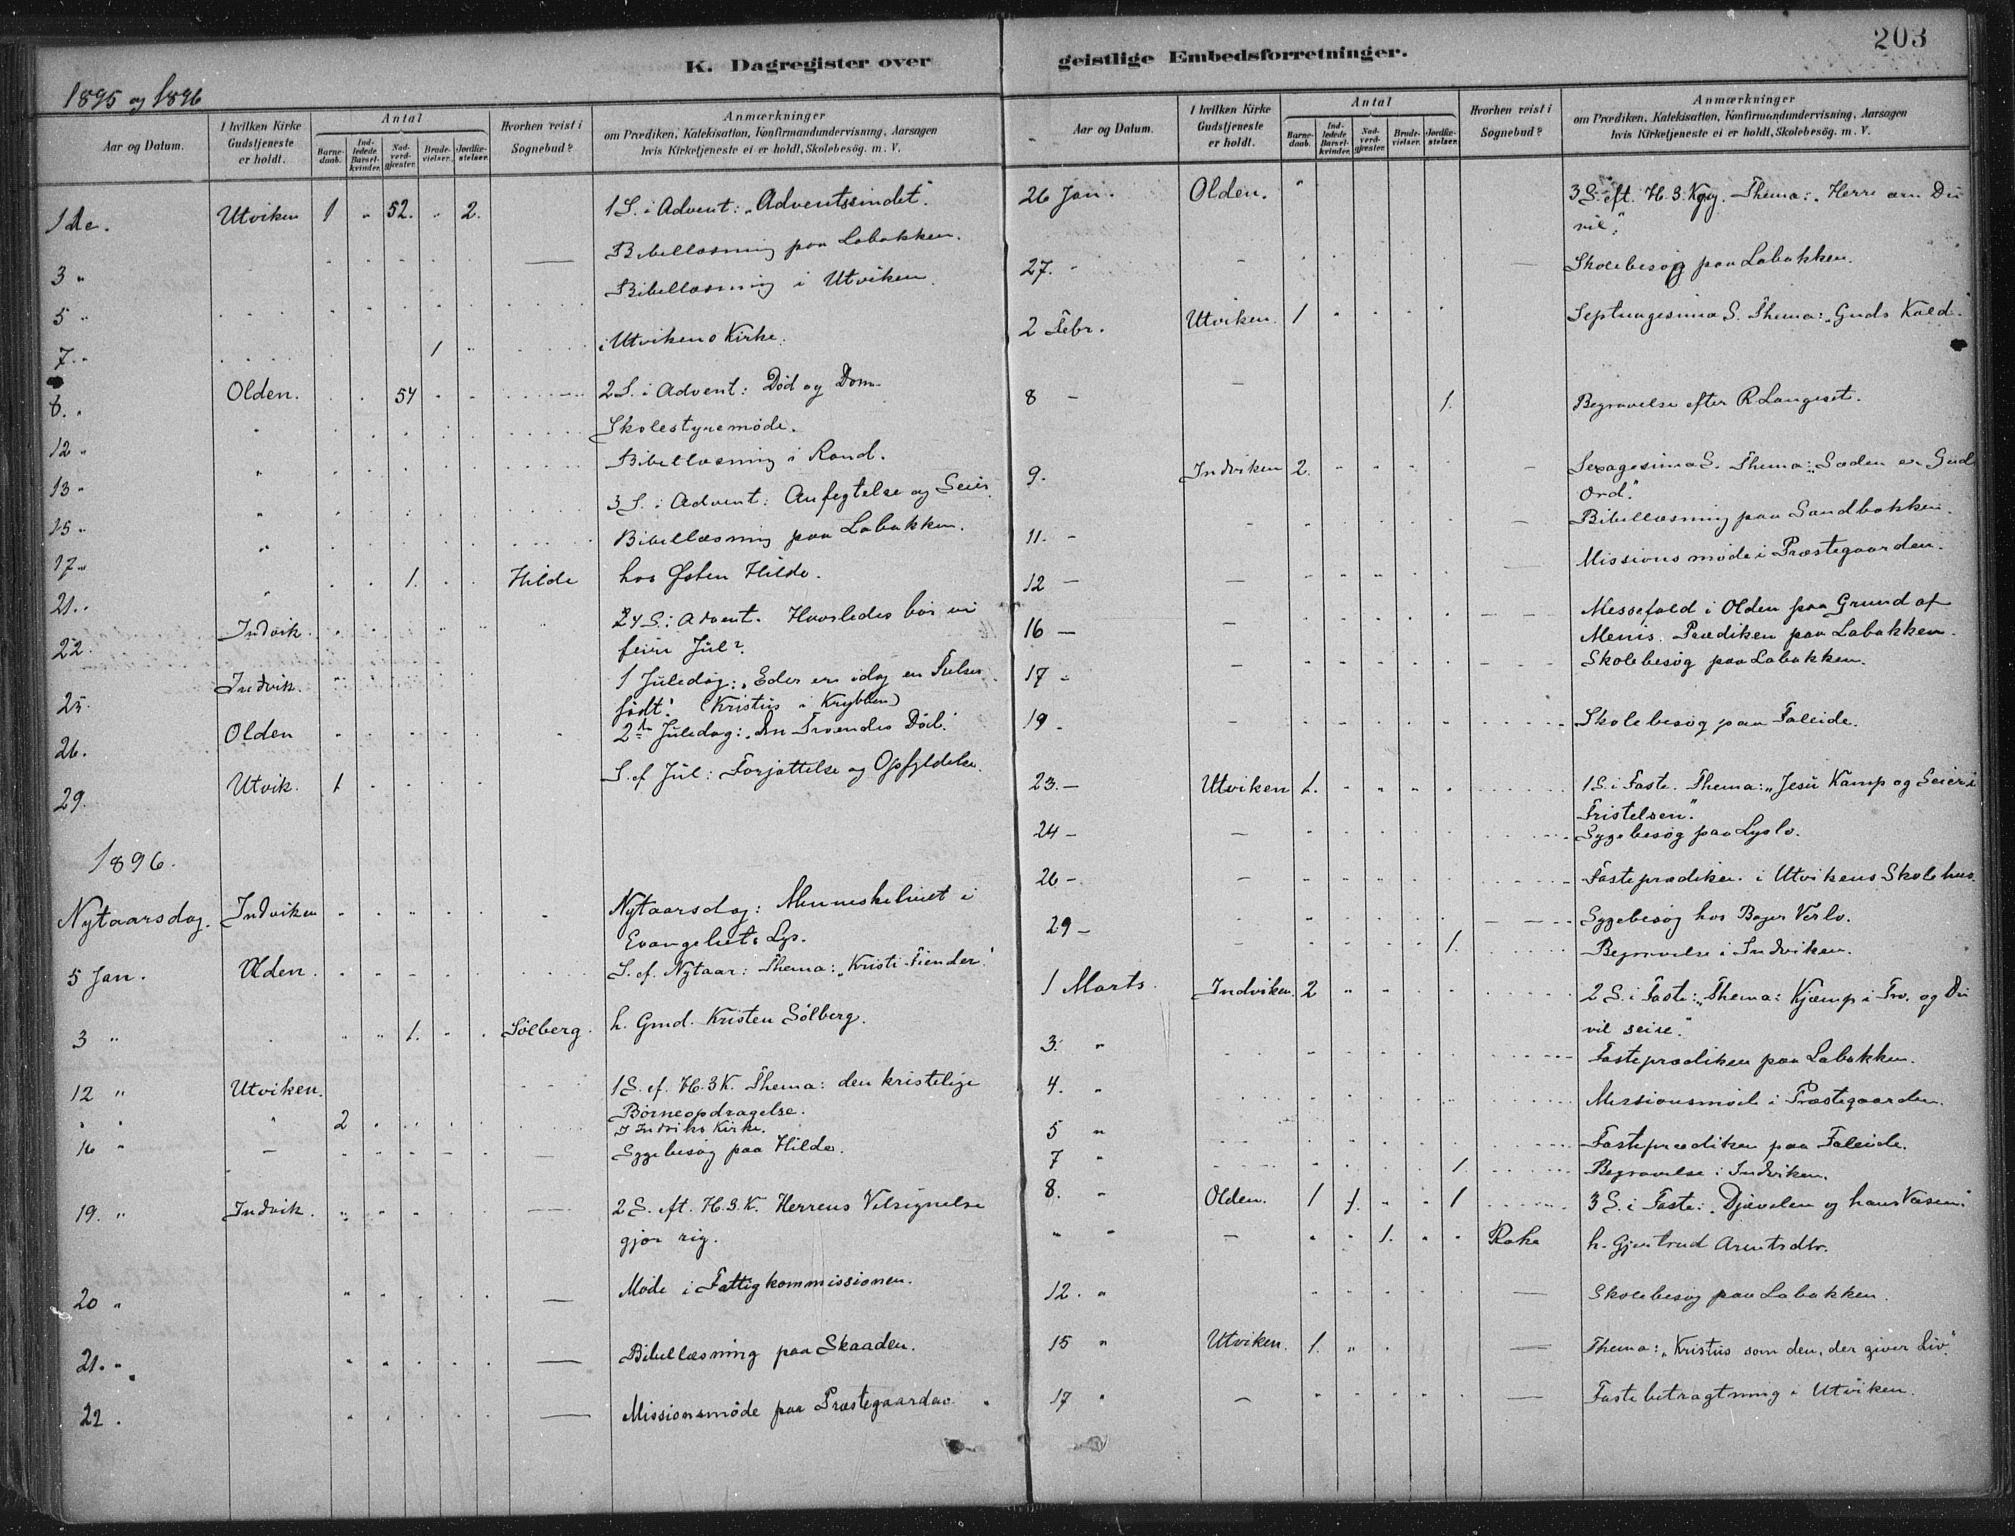 203
K. Dagregister over geistlige Embedsforretninger.
1895 og 1896
Aar og Datum. I hvilken Kirke Gudstjeneste er holdt. Antal Barnedaab. Indledede Barselkvinder. Nadverdgjæster. Brudevielser. Jordfæstelser. Hvorhen reist i Sognebud? Anmærkninger om Prædiken, Katekisation, Konfirmandundervisning, Aarsagen hvis Kirketjeneste ei er holdt, Skolebesøg. m. V.
1 de. Utviken 1 " 52. " 2. 1 S. i Advent: "Adventssindet".
3 " Bibellæsning paa Løbakken.
5 " Bibellæsning i Utviken.
7. " 1 i Utvikens Kirke.
8. " Olden. 54 2 S. i Advent: Død og Dom.
12 " Skolestyremøde.
13 " Bibellæsning i Rand.
15 " 3 S. i Advent: Anfegtelse og Seier.
17 " Bibellæsning paa Løbakken.
21. " 1. Hilde hos Østen Hilde.
22. Indvik. 4 S. i Advent. Hvorledes bør vi
feire Jul?
25. Indvik. 1 Juledag: "Eder er idag en Frelser
født". (Kristus i Krybben)
26. Olden 2den Juledag: "Den Troendes Død".
29. Utvik. 1 S. ef. Jul: Forjættelse og Opfyldelse.
1896.
Nytaarsdag. Indviken Nytaarsdag: Menneskelivet i
Evangeliets Lys.
5 Jan. Olden. S. ef. Nytaar: Thema: "Kristi Fiender".
3 " 1. Sølberg. h. Gmd. Kristen Sølberg.
12 " Utviken. 1 S. ef. H. 3 K. Thema: den kristelige
Børneopdragelse.
" " " 2 I Indviks Kirke.
16 " Sygebesøg paa Hilde.
19. " Indvik. 2 S. eft. H. 3. K. Herrens Velsignelse
gjør rig.
20 " Møde i Fattigkommissionen.
21. " Bibellæsning paa Skaaden.
22. Missionsmøde paa Præstegaarden.
Aar og Datum. I hvilken Kirke Gudstjeneste er holdt. Antal Barnedaab. Indledede Barselkvinder. Nadverdgjæster. Brudevielser. Jordfæstelser. Hvorhen reist i Sognebud? Anmærkninger om Prædiken, Katekisation, Konfirmandundervisning, Aarsagen hvis Kirketjeneste ei er holdt, Skolebesøg. m. V.
26 Jan. Olden. " 3 S. eft. H. 3. Kgg. Thema: "Herre om Du
vil".
27. " Skolebesøg paa Løbakken.
2 Febr. Utviken. 1 Septuagesima S. Thema: "Guds Kald".
8 — 1. Begravelse efter R Langeset.
9. Indviken 2. Sexagesima S. Thema: "Sæden er Guds
Ord."
11. — Bibellæsning paa Sandbakken.
12 — Missionsmøde i Præstegaarden.
16 — Messefald i Olden paa Grund af
Menis. Prædiken paa Løbakken.
17 — Skolebesøg paa Løbakken.
19. Skolebesøg paa Faleide.
23. — Utviken 1. 1 S. i Faste. Thema: "Jesu Kamp og Seier i
Fristelsen".
24 — Sygebesøg paa Lyslo.
26 — Fasteprædiken i Utvikens Skolehus.
29 — Sygebesøg hos Verlo.
1. Begravelse i Indviken.
1 Marts. Indviken. 2 2 S. i Faste: Thema: Kjæmp i Tro og Du
vil seire."
3. " Fasteprædiken paa Løbakken.
4. " Missionsmøde i Præstegaarden.
5 " Fasteprædiken paa Faleide.
7 " 1. Begravelse i Indviken.
8. " Olden. 1 1. 1 3 S. i Faste: "Djævelen og hans Væsen".
" " — 1. Rake h. Gjertrud Arntsdtr.
12. " Skolebesøg paa Løbakken.
15 " Utviken. 1. Thema: "Kristus som den, der giver Liv."
17 " — Fastebetragtning i Utviken.